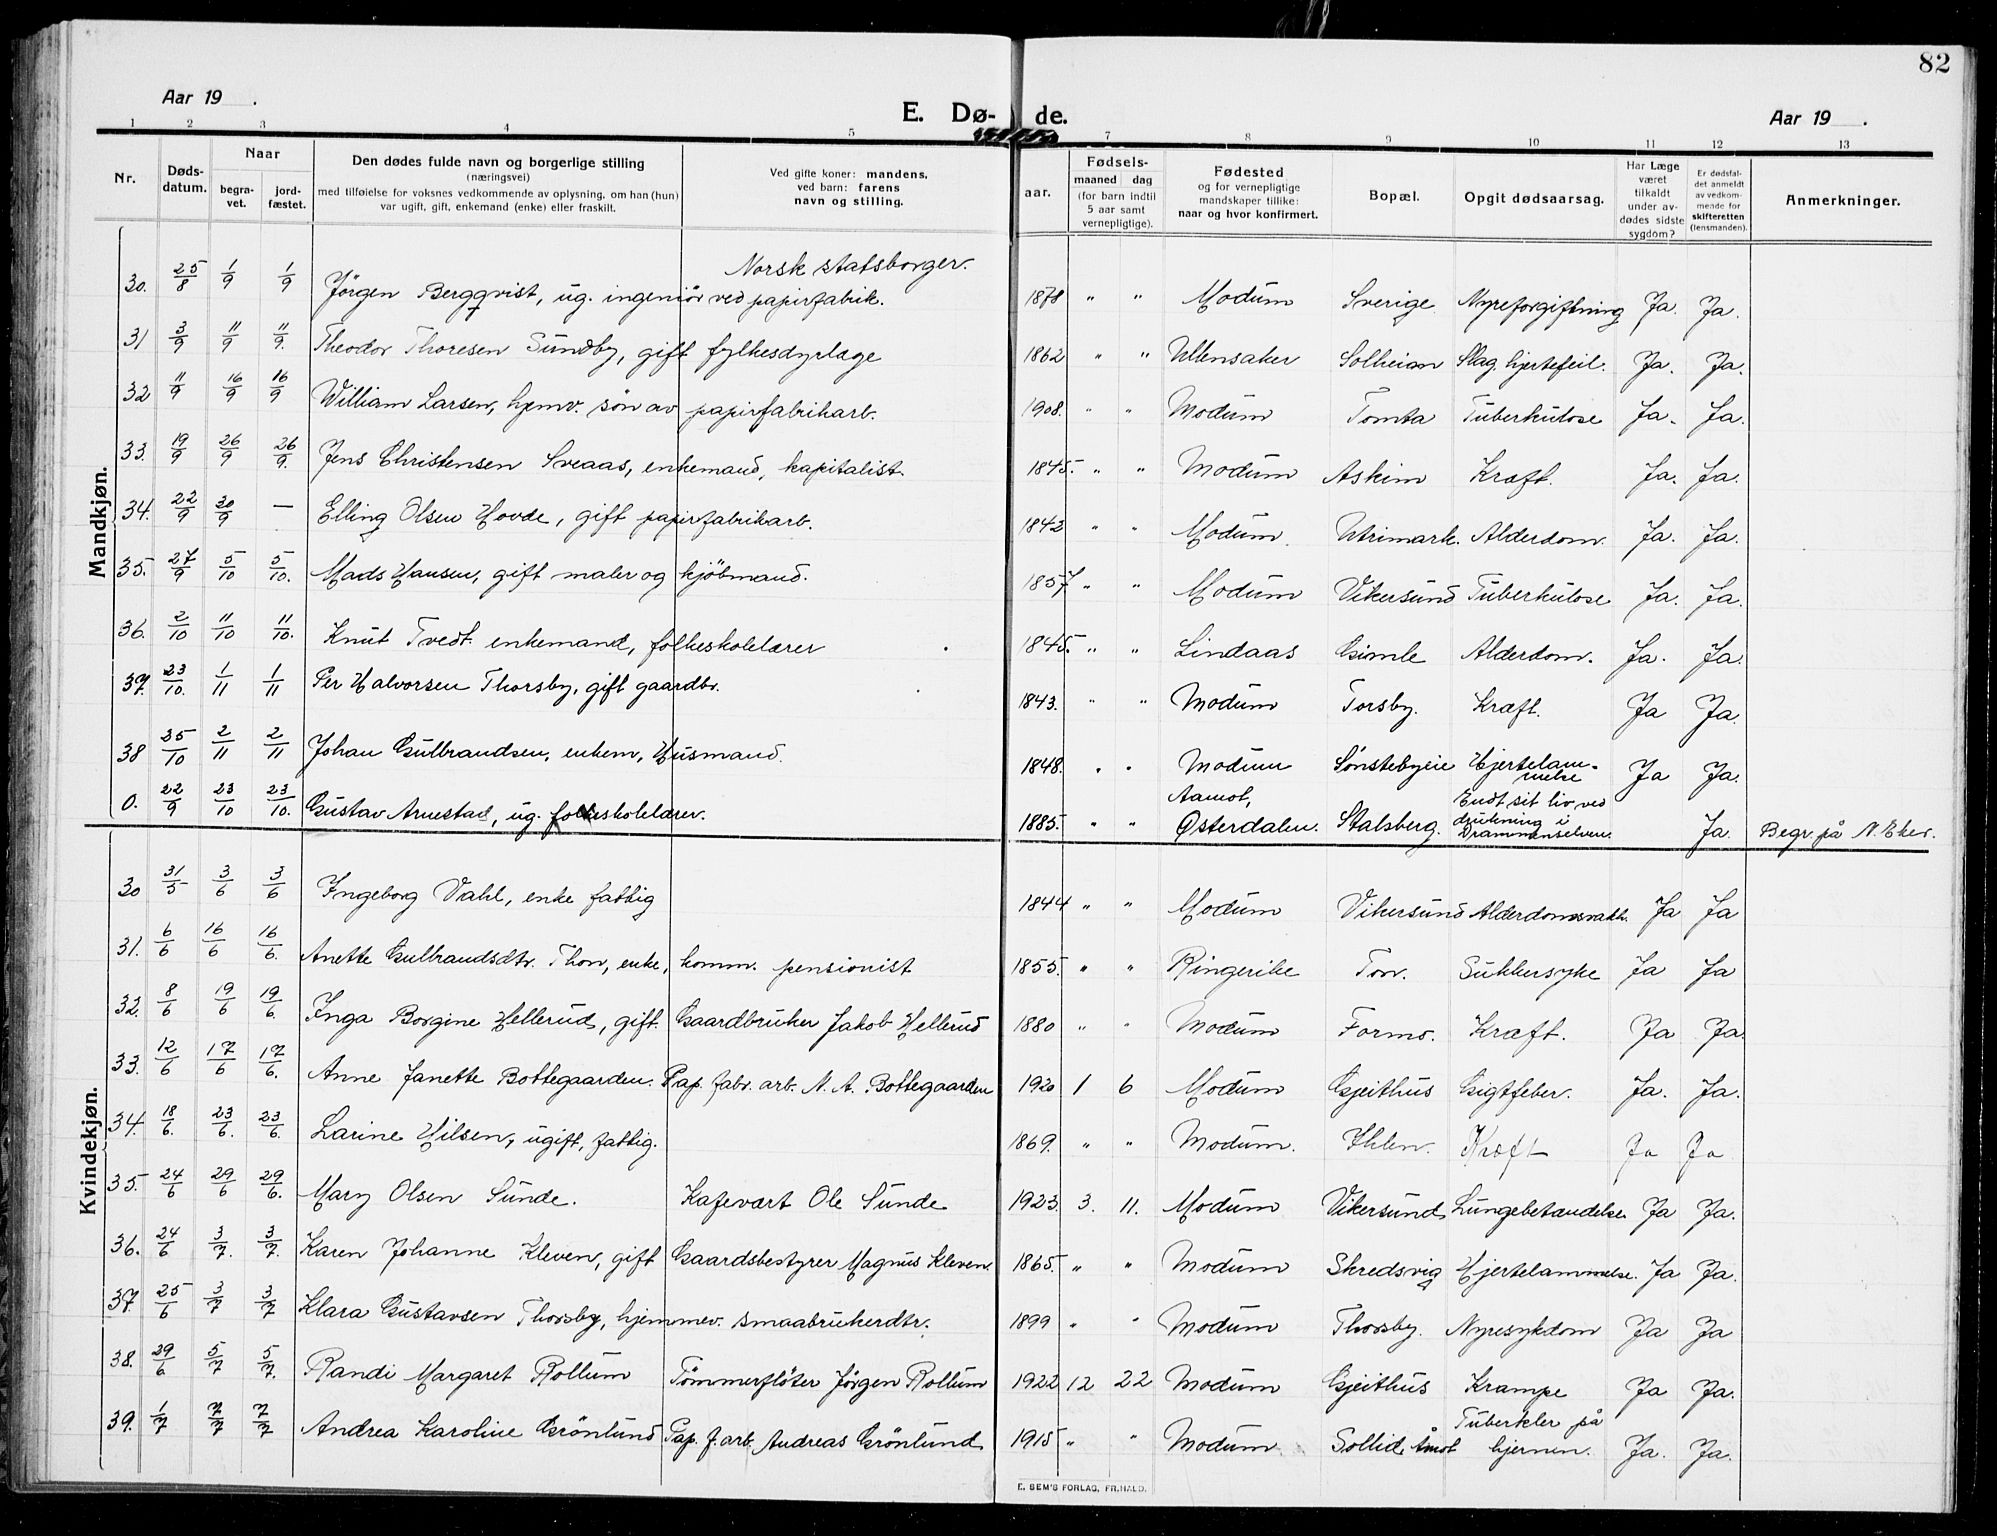 82
Aar 19 .
E. Dø- de.
Aar 19 .
1 2 3 4 5 7 8 9 10 11 12 13
Nr.
Døds-
datum.
Naar
begra-
vet.
jord-
fæstet.
Den dødes fulde navn og borgerlige stilling
(næringsvei)
med tilføielse for voksnes vedkommende av oplysning, om han (hun)
var ugift, gift, enkemand (enke) eller fraskilt.
Ved gifte koner: mandens,
ved barn: farens
navn og stilling.
aar.
Fødsels-
maaned dag
(for barn indtil
5 aar samt
vernepligtige).
Fødested
og for vernepligtige
mandskaper tillike:
naar og hvor konfirmert.
Bopæl.
Opgit dødsaarsag.
Har Læge
været
tilkaldt
under av-
dødes sidste
sygdom?
Er dødsfal-
det anmeldt
av vedkom-
mende for
skifteretten
(lensmanden).
Anmerkninger.
Mandkjøn.
Norsk statsborger.
30. 25/8 1/9 1/9 Jörgen Bergqvist, ug. ingeniör ved papirfabrik. 1878 " " Modum Sverige Nyreforgiftning Ja. Ja.
31 3/9 11/9 11/9. Theodor Thoresen Sundby, gift fylkesdyrlæge 1862 " " Ullensaker Solheim Slag, hjertefeil. Ja. Ja.
32 11/9 16/9 16/9 William Larsen, hjemv. søn av papirfabrikarb. 1908. " " Modum Tomta Tuberkulose Ja. Ja.
33. 19/9 26/9 26/9. Jens Christensen Sveaas, enkemand, kapitalist. 1845. " " Modum Askim Kræft. Ja. Ja.
34. 22/9 30/9 — Elling Olsen Hovde, gift papirfabrikarb. 1842 " " Modum. Utrimark. Alderdom. Ja. Ja.
35. 27/9 5/10 5/10. Mads Hansen, gift maler og kjöbmand. 1857 " " Modum Vikersund Tuberkulose Ja. Ja.
36. 2/10 11/10 11/10. Knut Tvedt enkemand, folkeskolelærer 1845. " " Lindaas Gimle Alderdom. Ja. Ja.
37. 23/10. 1/11 1/11 Per Halvorsen Thorsby, gift gaardbr. 1843. " " Modum Torsby. Kræft. Ja Ja.
38 25/10 2/11 2/11 Johan Gulbrandsen, enkem, Husmand. 1848. " " Modum Sönstebyeie Hjertelam-
melse Ja Ja.
0. 22/9 23/10 23/10. Gustav Arnestad, ug. folkeskolelærer. 1885. " " Aamot,
Österdalen. Stalsberg. Endt sit liv ved
drukning i
Drammenselven. Ja. Begr. på N. Eker.
Kvindekjøn.
30 31/5 3/6 3/6 Ingeborg Vahl, enke fattig 1844 " " Modum Vikersund Alderdomsvakh. Ja Ja
31. 6/6 16/6 16/6. Anette Gulbrandsdtr. Thon, enke, komm. pensionist 1855. " " Ringerike Ton. Sukkersyke Ja Ja
32. 8/6 19/6 19/6. Inga Borgine Hellerud, gift. Gaardbruker Jakob Hellerud 1880 " " Modum Formo. Kræft. Ja Ja.
33. 12/6 17/6 17/6. Anne Janette Bottegaarden. Pap. fabr. arb. N. A. Bottegaarden 1920 1 6 Modum Gjeithus Gigtfeber. Ja. Ja.
34. 18/6. 23/6. 23/6. Larine Nilsen, ugift, fattig. 1869. " " Modum. Ihlen. Kræft Ja Ja
35. 24/6 29/6 29/6. Mary Olsen Sunde. Kafevært Ole Sunde 1923. 3. 11. Modum Vikersund Lungebetændelse Ja Ja.
36. 24/6 3/7. 3/7. Karen Johanne Kleven, gift Gaardsbestyrer Magnus Kleven. 1865. " " Modum Skredsvig Hjertelammelse. Ja Ja.
37. 25/6 3/7 3/7 Klara Gustavsen Thorsby, hjemmev. smaabrukerdtr. 1899 " " Modum Thorsby. Nyresykdom Ja Ja
38. 29/6 5/7 5/7. Randi Margaret Rollum Tömmerflöter Jörgen Rollum 1922 12 22 Modum Gjeithus Krampe Ja Ja.
39. 1/7 7/7 7/7 Andrea Karoline Grönlund Pap. f. arb. Andreas Grönlund 1915 " " Modum Sollid, Åmot Tuberkler på
hjernen. Ja. Ja.
E. SEM'S FORLAG, FR.HALD.